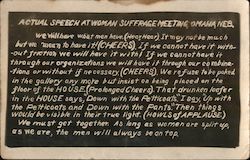 ACTUAL SPEECH AT WOMAN SUFFRAGE MEETING, OMAHA, NEB.
We will have what men have. (Hoorays) It may not be much
but we mean to have it! (CHEERS). If we cannot have it with-
out friction we will have it with! If we cannot have it
through our organizations we will have it through our combina-
tions or without if necessary. (CHEERS). We refuse to be poked
in the gallery any more but insist on being placed on the
floor of the HOUSE. (Prolonged Cheers). That drunken loafer
in the HOUSE says, Down with the Petticoats, I say, Up with
the Petticoats and Down with the Pants. Then things
would be visible in their true light. (HOWLS of APPLAUSE)
We must get together. As long as women are split up
as we are, the men will always be on top.